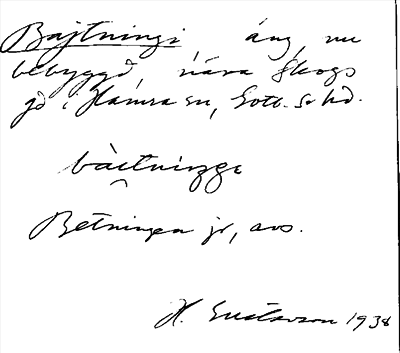 Bajtningi, äng, nu
bebyggd, nära Skogs
gd i Hamra sn, Gotl. S. hd.
bàitniŋge
Betningen jr, avs.
H. Gustavson 1938